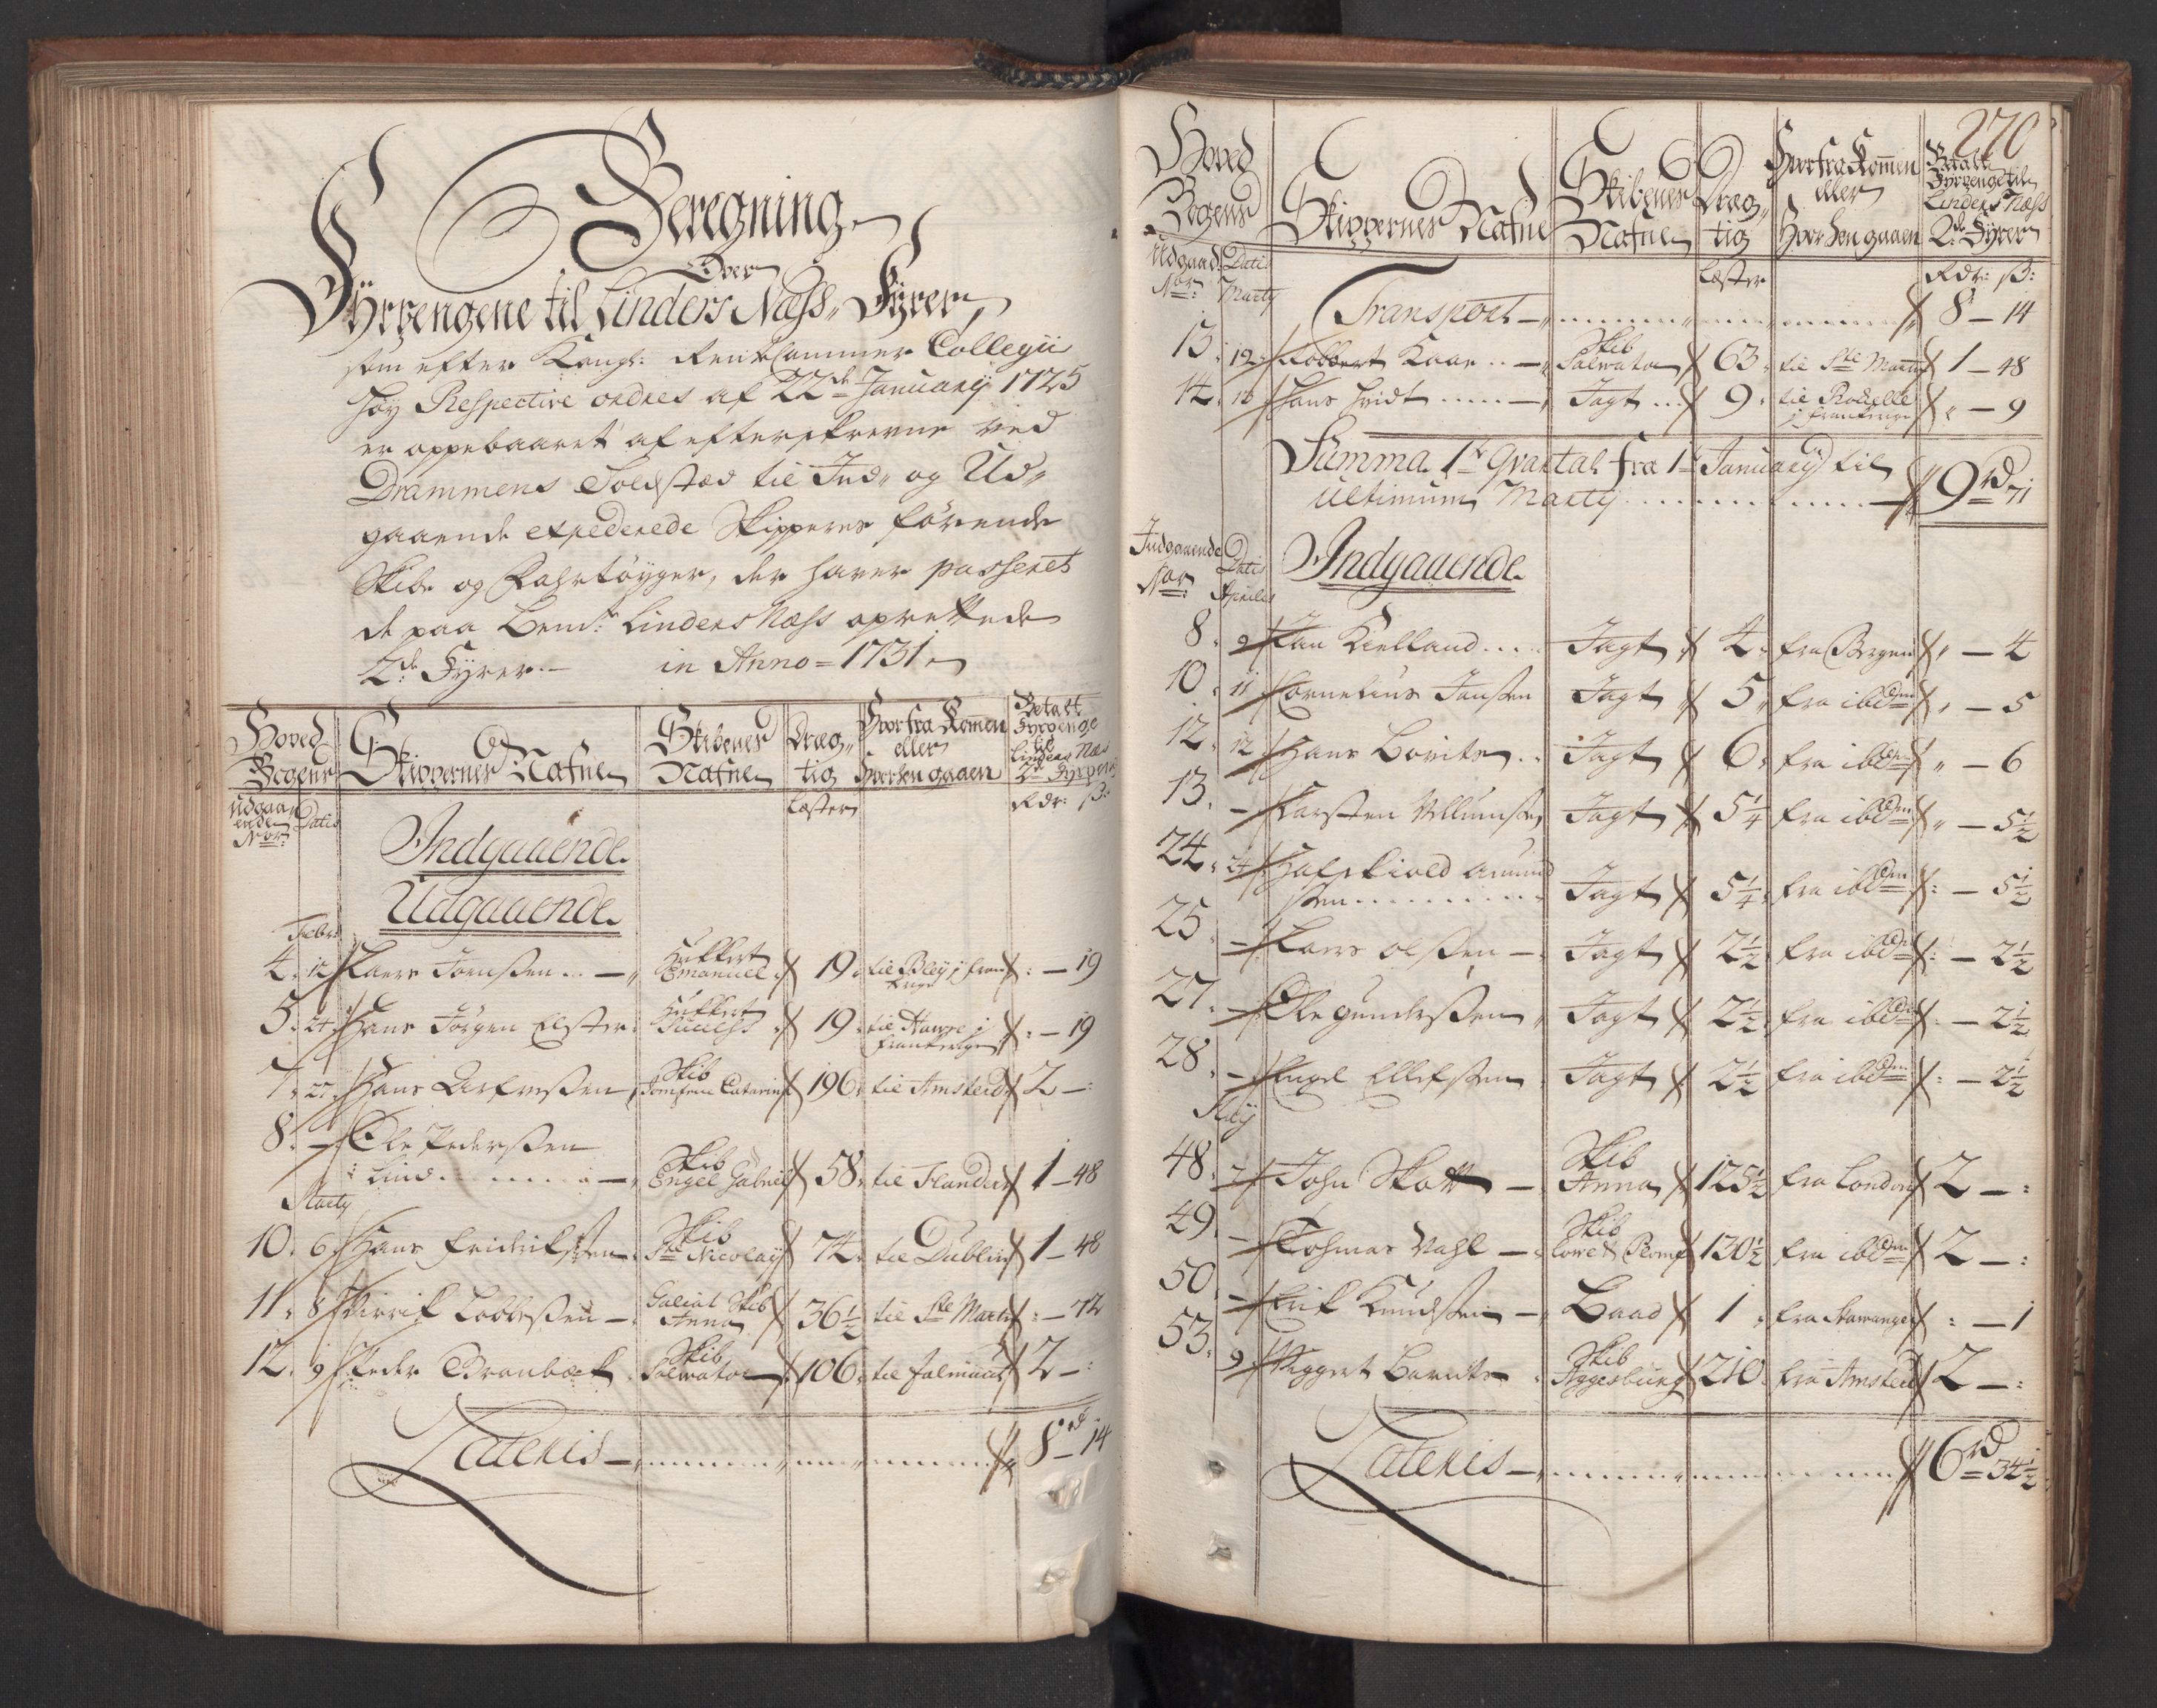 Beregning
Over
Fyrpengene til Linders Næss Fyrer,
som efter Kongl: Rentkammer Collegii
høy Respective ordres af 22de January 1725
er oppebaaret af efterskrevne ved
Drammens Toldsted til Ind- og Ud-
gaaende expederede Skippere førende
Skibe og Fahrtøyger, der haver passeret
de paa Bemte Linders Næss oprettede
2de Fyrer.- in Anno = 1731
Hoved Bogens
Skippernes Nafne
Skibenes Nafne
Dræg- tig
Hvorfra Kommen eller Hvorhen gaaen
Betalt Fyrpenge til Linders Næs 2de Fyrer
Udgaa- ende Nor: Datis
Læster
Rdr: ß:
Indgaaende.
Udgaaende.
Febr:
4. 12 Laers Joenssen .. Hukkert Emanuel 19 til Bley j Frankrige - 19
5. 24 Hans Jørgen Elster Hukkert Success 19 til Hawre j Frankerige - 19
7. 27 Hans Skib Jomfrue Catarina 196 til Amsterd 2 -:
8. - Ole Pederssen
Lind Skib Engel Gabriel 58 til Flandern 1 - 48
Marty
10. 6 Hans Friderichsen Skib Ste Nicolay 74 til Dublin 1 - 48
11. 8 Lobbessen - Galiot Skib Anna 36 1/2 til Ste Martin - 72
12. 9 Peder Brønbæck Skib Salvator 106 til Falmuat 2 -:
Lateris 8 rd 14
270
Hoved Bogens
Skippernes Nafne
Skibenes Nafne
Dræg- tig
Hvorfra Kommen eller Hvorhen gaaen
Betalt Fyrpenge til Linders Næss 2de Fyrer
Udgaaend Nor: Datis Marty
Læster
Rdr: ß:
Transport 8 - 14
13. 12 Robbert Kaae .. Skib Salvator 63 til Ste Martin 1 - 48
14. 16 Hans Hvidt Jagt 9 til Rochelle j Frankerige - 9
Summa 1te Qvartal fra 1te January til
ultimum Marty 9 rd 71
Indgaaende Nor: Datis Aprilis
Indgaaende.
8. 9 Jan Kielland Jagt 4 fra Bergen - 4
10. 11 Cornelius Jansen Jagt 5 fra ibdem - 5
12. 12 Hans Jagt 6 fra ibdem - 6
13. - Karsten Villumsen Jagt 5 1/4 fra ibdem - 5 1/2
24. 24 Amund
sen Jagt 5 1/4 fra ibdem - 5 1/2
25. - Laers Olssen Jagt 2 1/2 fra ibdem - 2 1/2
27. - Ole Gunderssen Jagt 2 1/2 fra ibdem - 2 1/2
28. - Engel Ellefssen Jagt 2 1/2 fra ibdem - 2 1/2
May
48. 7 John Skott Skib Anna 125 1/2 fra London 2 -:
49. - Tohmas Vahl Skib 130 1/2 fra ibdem 2 -:
50. - Erik Knudssen Baad 1 fra Stawanger - 1
53. 9 Viggert Barentz Skib Aggesburg 210 fra Amsterd 2 -:
Lateris 6 rd 34 1/2